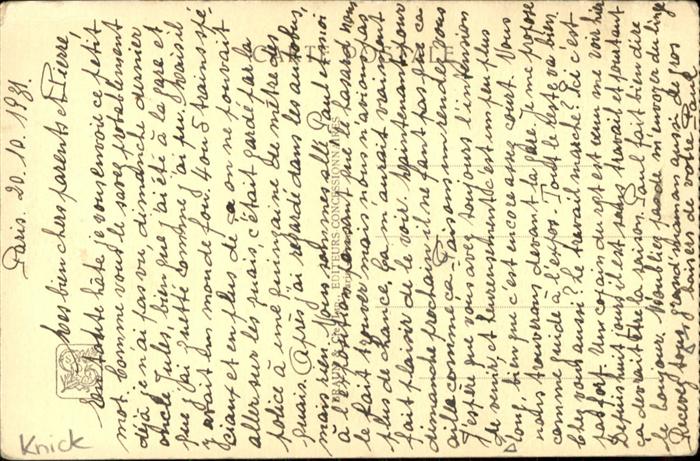 Paris. 20.10.1931.
Mes bien chers parents et Pierre,
En toute hâte je vous envoie ce petit
mot. Comme vous le savez probablement
déjà je n'ai pas vu, dimanche dernier
oncle Jules, bien que j'ai été à la gare et
que j'ai guetté comme j'ai pu. Mais il
y avait un monde fou. 4 ou 5 trains spé-
ciaux et en plus de ça on ne pouvait
aller sur les quais, c'était gardé par la
police à une quinzaine de mètre des
quais. Après j'ai regardé dans les autobus,
mais rien. Nous sommes allé Paul et moi
à l'expo, en pensant que le hasard nous
le fait trouver mais nous n'avions pas
plus de chance, ça m'aurait vraiment
fait plaisir de le voir. Maintenant pour
dimanche prochain, il ne faut pas que ça
aille comme ça. Faisons un rendez-vous
J'espère que vous avez toujours l'intension
de venir, et heureusement c'est un peu plus
long, bien que c'est encore assez court. Vous
nous trouverons devant la gare. Je me propose
comme guide à l'expos. Tout le reste va bien.
Chez vous aussi? Le travail marche? Ici c'est
pas fort. Un copain du rgt est venu me voir hier
Depuis huit jours il est sans travail et pourtant
ça devrait être la saison. Paul fait bien dire
le bonjour. N'oubliez pas de m'envoyer du linge
Recevez tous, grand'maman aussi, de gros
CARTE POSTALE
BRAUN & Cie
EDITEURS CONCESSIONNAIRES
Knick